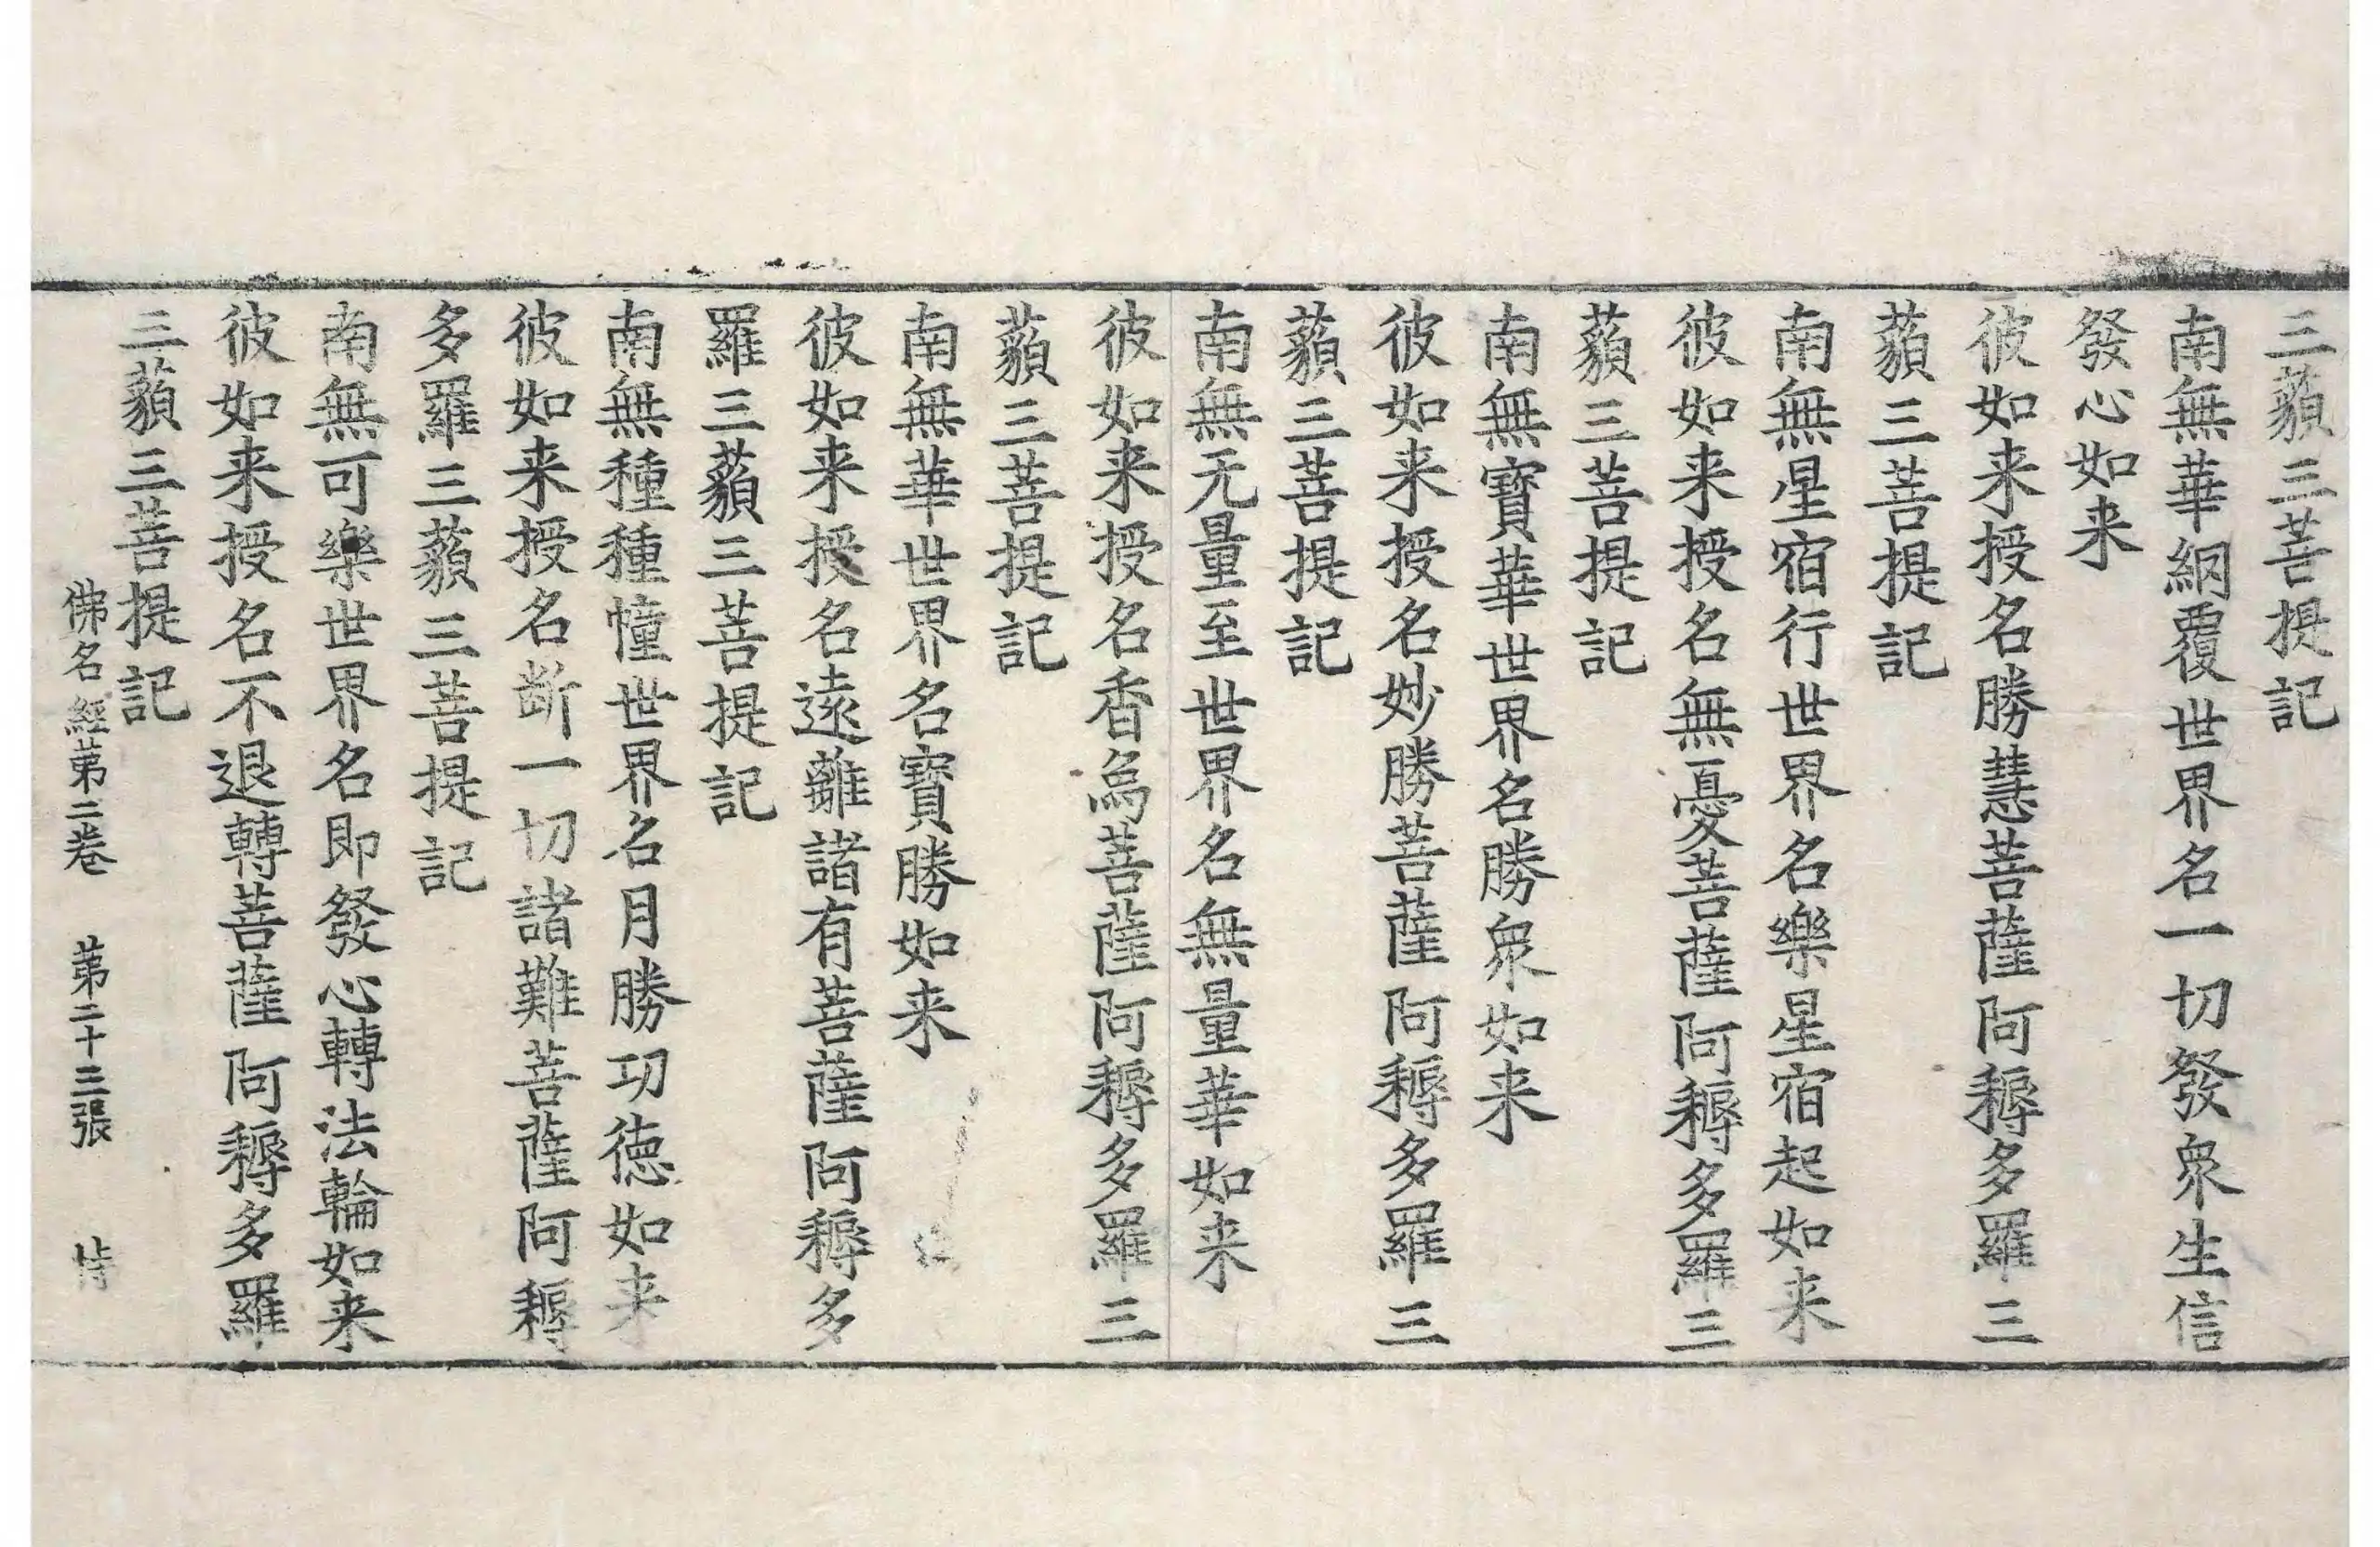 三藐三菩提記
南無華網覆世界名一切發衆生信
發心如来
彼如来授名勝慧菩薩阿耨多羅三
藐三菩提記
南無星宿行世界名樂星宿起如来
彼如来授名無憂菩薩阿耨多羅三
藐三菩提記
南無寶華世界名勝衆如来
彼如来授名妙勝菩薩阿耨多羅三
藐三菩提記
南無无量至世界名無量華如来
彼如来授名香爲菩薩阿耨多羅三
藐三菩提記
南無華世界名寶勝如来
彼如来授名遠離諸有菩薩阿耨多
羅三藐三菩提記
南無種種幢世界名月勝功德如来
彼如来授名断一切諸難菩薩阿耨
多羅三藐三菩提記
南無可樂世界名即發心轉法輪如来
彼如来授名不退轉菩薩阿耨多羅
三藐三菩提記
佛名經第二卷 第二十三張 恃